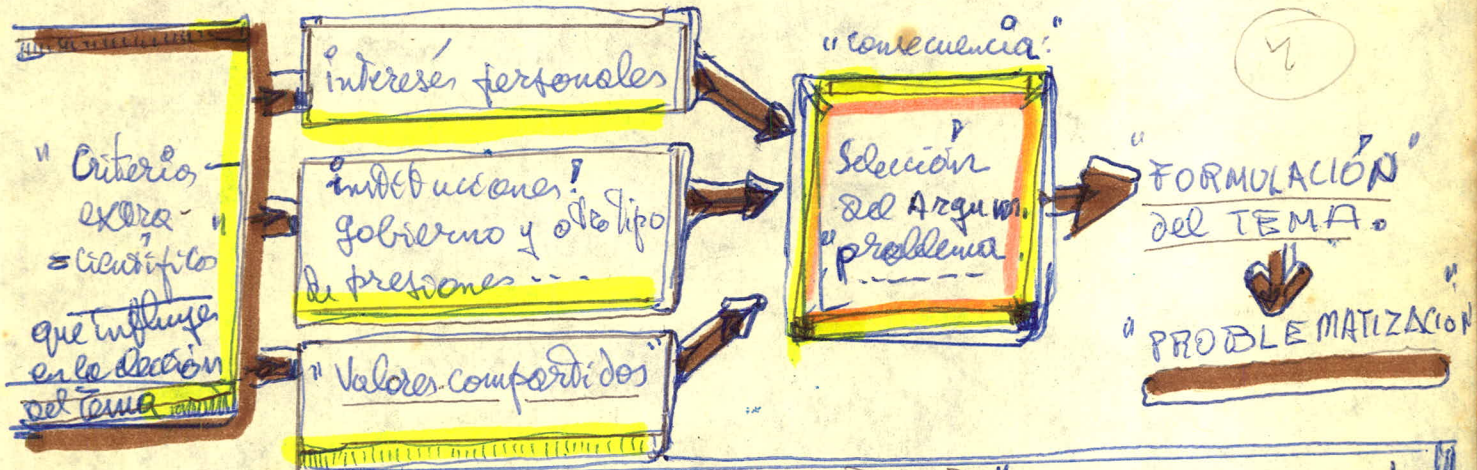 "Criterios
extra-
=científicos"
que influyen
en la elección
del tema
interesés personales
instituciones!
gobierno y otro tipo
de presiones ---
"Valores compartidos"
"consecuencia:"
Selección
del Argum.
"problema"
"FORMULACIÓN"
del TEMA.
"PROBLEMATIZACIÓN"